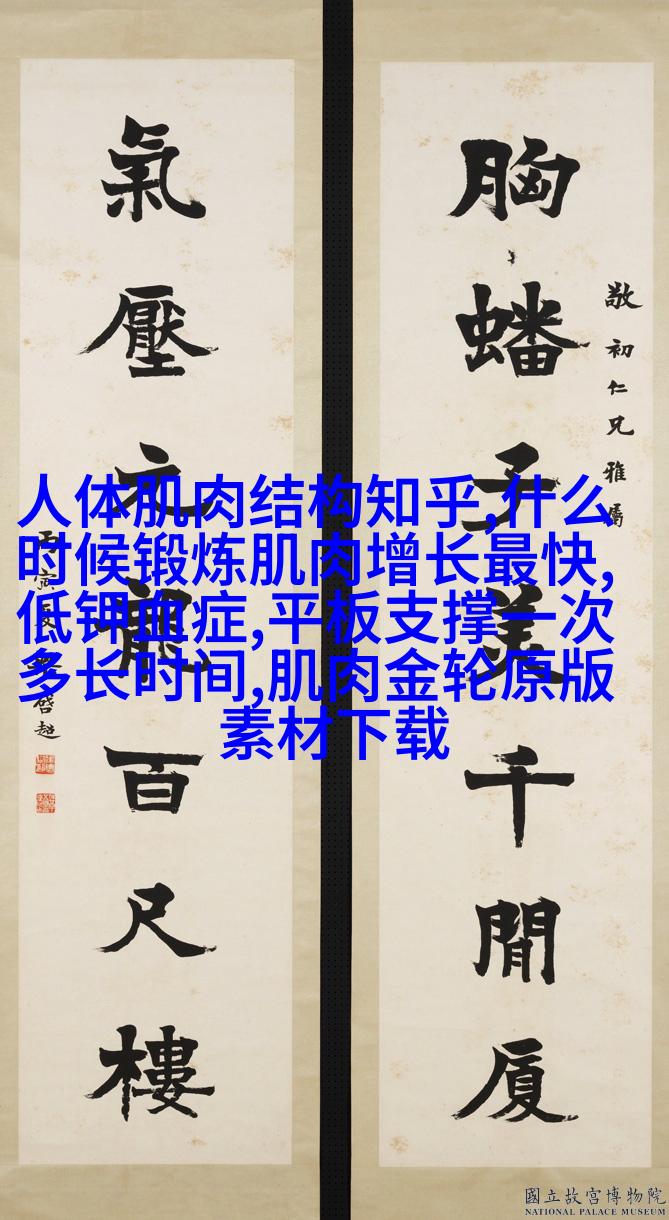 胸蟠子美千間廈
敬初仁兄雅屬
氣壓元龍百尺樓
丙寅啓超
人体肌肉结构知乎,什么
时候锻炼肌肉增长最快,
低钾血症,平板支撑一次
多长时间,肌肉金轮原版
素材下载
國立故宮博物院
NATIONAL PALACE MUSEUM